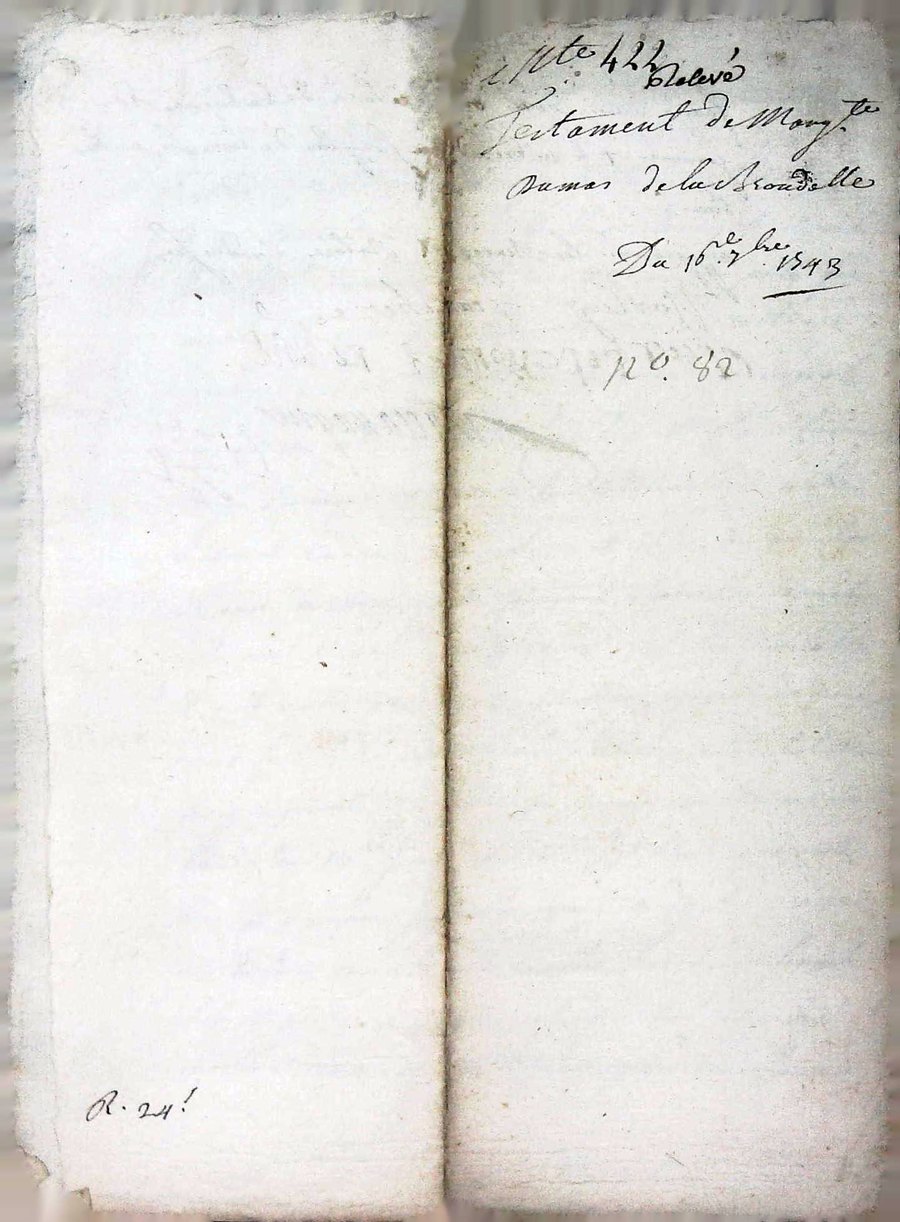 Nte 422
Relevé
Testament De Marg.te
Dumas de la Brondelle
Du 16.e 7bre. 1543
No. 82
R. 24.s